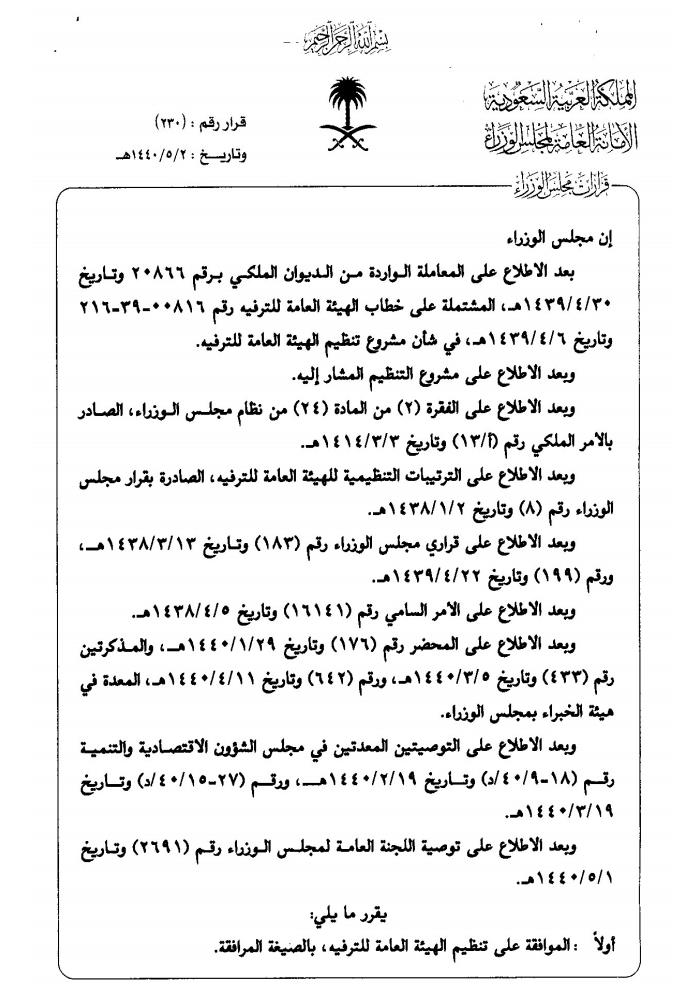 بسم الله الرحمن الرحيم
المملكة العربية السعودية
الأمانة العامة لمجلس الوزراء
قرار رقم : (٢٣٠)
وتاريخ : ١٤٤٠/٥/٢هـ
قرارات مجلس الوزراء
إن مجلس الوزراء
بعد الاطلاع على المعاملة الواردة من الديوان الملكي برقم ٢٠٨٦٦ وتاريخ
١٤٣٩/٤/٣٠هـ، المشتملة على خطاب الهيئة العامة للترفيه رقم ٠٠٨١٦-٣٩-٢١٦
وتاريخ ١٤٣٩/٤/٦هـ، في شأن مشروع تنظيم الهيئة العامة للترفيه.
وبعد الاطلاع على مشروع التنظيم المشار إليه.
وبعد الاطلاع على الفقرة (٢) من المادة (٢٤) من نظام مجلس الوزراء، الصادر
بالأمر الملكي رقم (أ/١٣) وتاريخ ١٤١٤/٣/٣هـ.
وبعد الاطلاع على الترتيبات التنظيمية للهيئة العامة للترفيه، الصادرة بقرار مجلس
الوزراء رقم (٨) وتاريخ ١٤٣٨/١/٢هـ.
وبعد الاطلاع على قراري مجلس الوزراء رقم (١٨٣) وتاريخ ١٤٣٨/٣/١٣هـ،
ورقم (١٩٩) وتاريخ ١٤٣٩/٤/٢٢هـ.
وبعد الاطلاع على الأمر السامي رقم (١٦١٤١) وتاريخ ١٤٣٨/٤/٥هـ.
وبعد الاطلاع على المحضر رقم (١٧٦) وتاريخ ١٤٤٠/١/٢٩هـ، والمذكرتين
رقم (٤٣٣) وتاريخ ١٤٤٠/٣/٥هـ، ورقم (٦٤٢) وتاريخ ١٤٤٠/٤/١١هـ، المعدة في
هيئة الخبراء بمجلس الوزراء.
وبعد الاطلاع على التوصيتين المعدتين في مجلس الشؤون الاقتصادية والتنمية
رقم (١٨-٤٠/٩/د) وتاريخ ١٤٤٠/٢/١٩هـ، ورقم (٢٧-٤٠/١٥/د) وتاريخ
١٤٤٠/٣/١٩هـ.
وبعد الاطلاع على توصية اللجنة العامة لمجلس الوزراء رقم (٢٦٩١) وتاريخ
١٤٤٠/٥/١هـ.
يقرر ما يلي:
أولاً : الموافقة على تنظيم الهيئة العامة للترفيه، بالصيغة المرافقة.